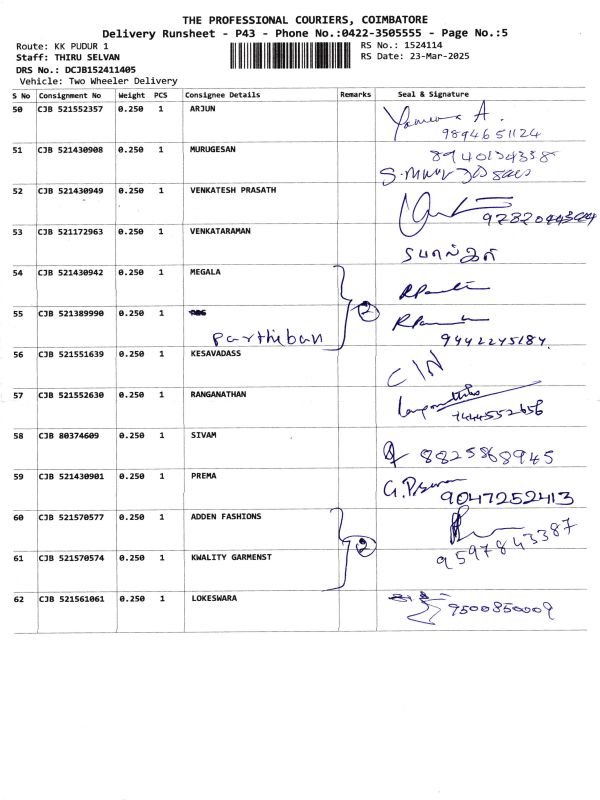 THE PROFESSIONAL COURIERS, COIMBATORE
Delivery Runsheet - P43 - Phone No.:0422-3505555 - Page No.:5
Route: KK PUDUR 1 RS No.: 1524114
Staff: THIRU SELVAN RS Date: 23-Mar-2025
DRS No.: DCJB152411405
Vehicle: Two Wheeler Delivery
S No Consignment No Weight PCS Consignee Details Remarks Seal & Signature
50 CJB 521552357 0.250 1 ARJUN
9894651124
51 CJB 521430908 0.250 1 MURUGESAN
52 CJB 521430949 0.250 1 VENKATESH PRASATH
53 CJB 521172963 0.250 1 VENKATARAMAN
54 CJB 521430942 0.250 1 MEGALA
55 CJB 521389990 0.250 1
Parthiban 2
9442245184
56 CJB 521551639 0.250 1 KESAVADASS
C/N
57 CJB 521552630 0.250 1 RANGANATHAN
58 CJB 80374609 0.250 1 SIVAM
8825868945
59 CJB 521430901 0.250 1 PREMA
9047252413
60 CJB 521570577 0.250 1 ADDEN FASHIONS
2
9597843387
61 CJB 521570574 0.250 1 KWALITY GARMENST
62 CJB 521561061 0.250 1 LOKESWARA
9500850009